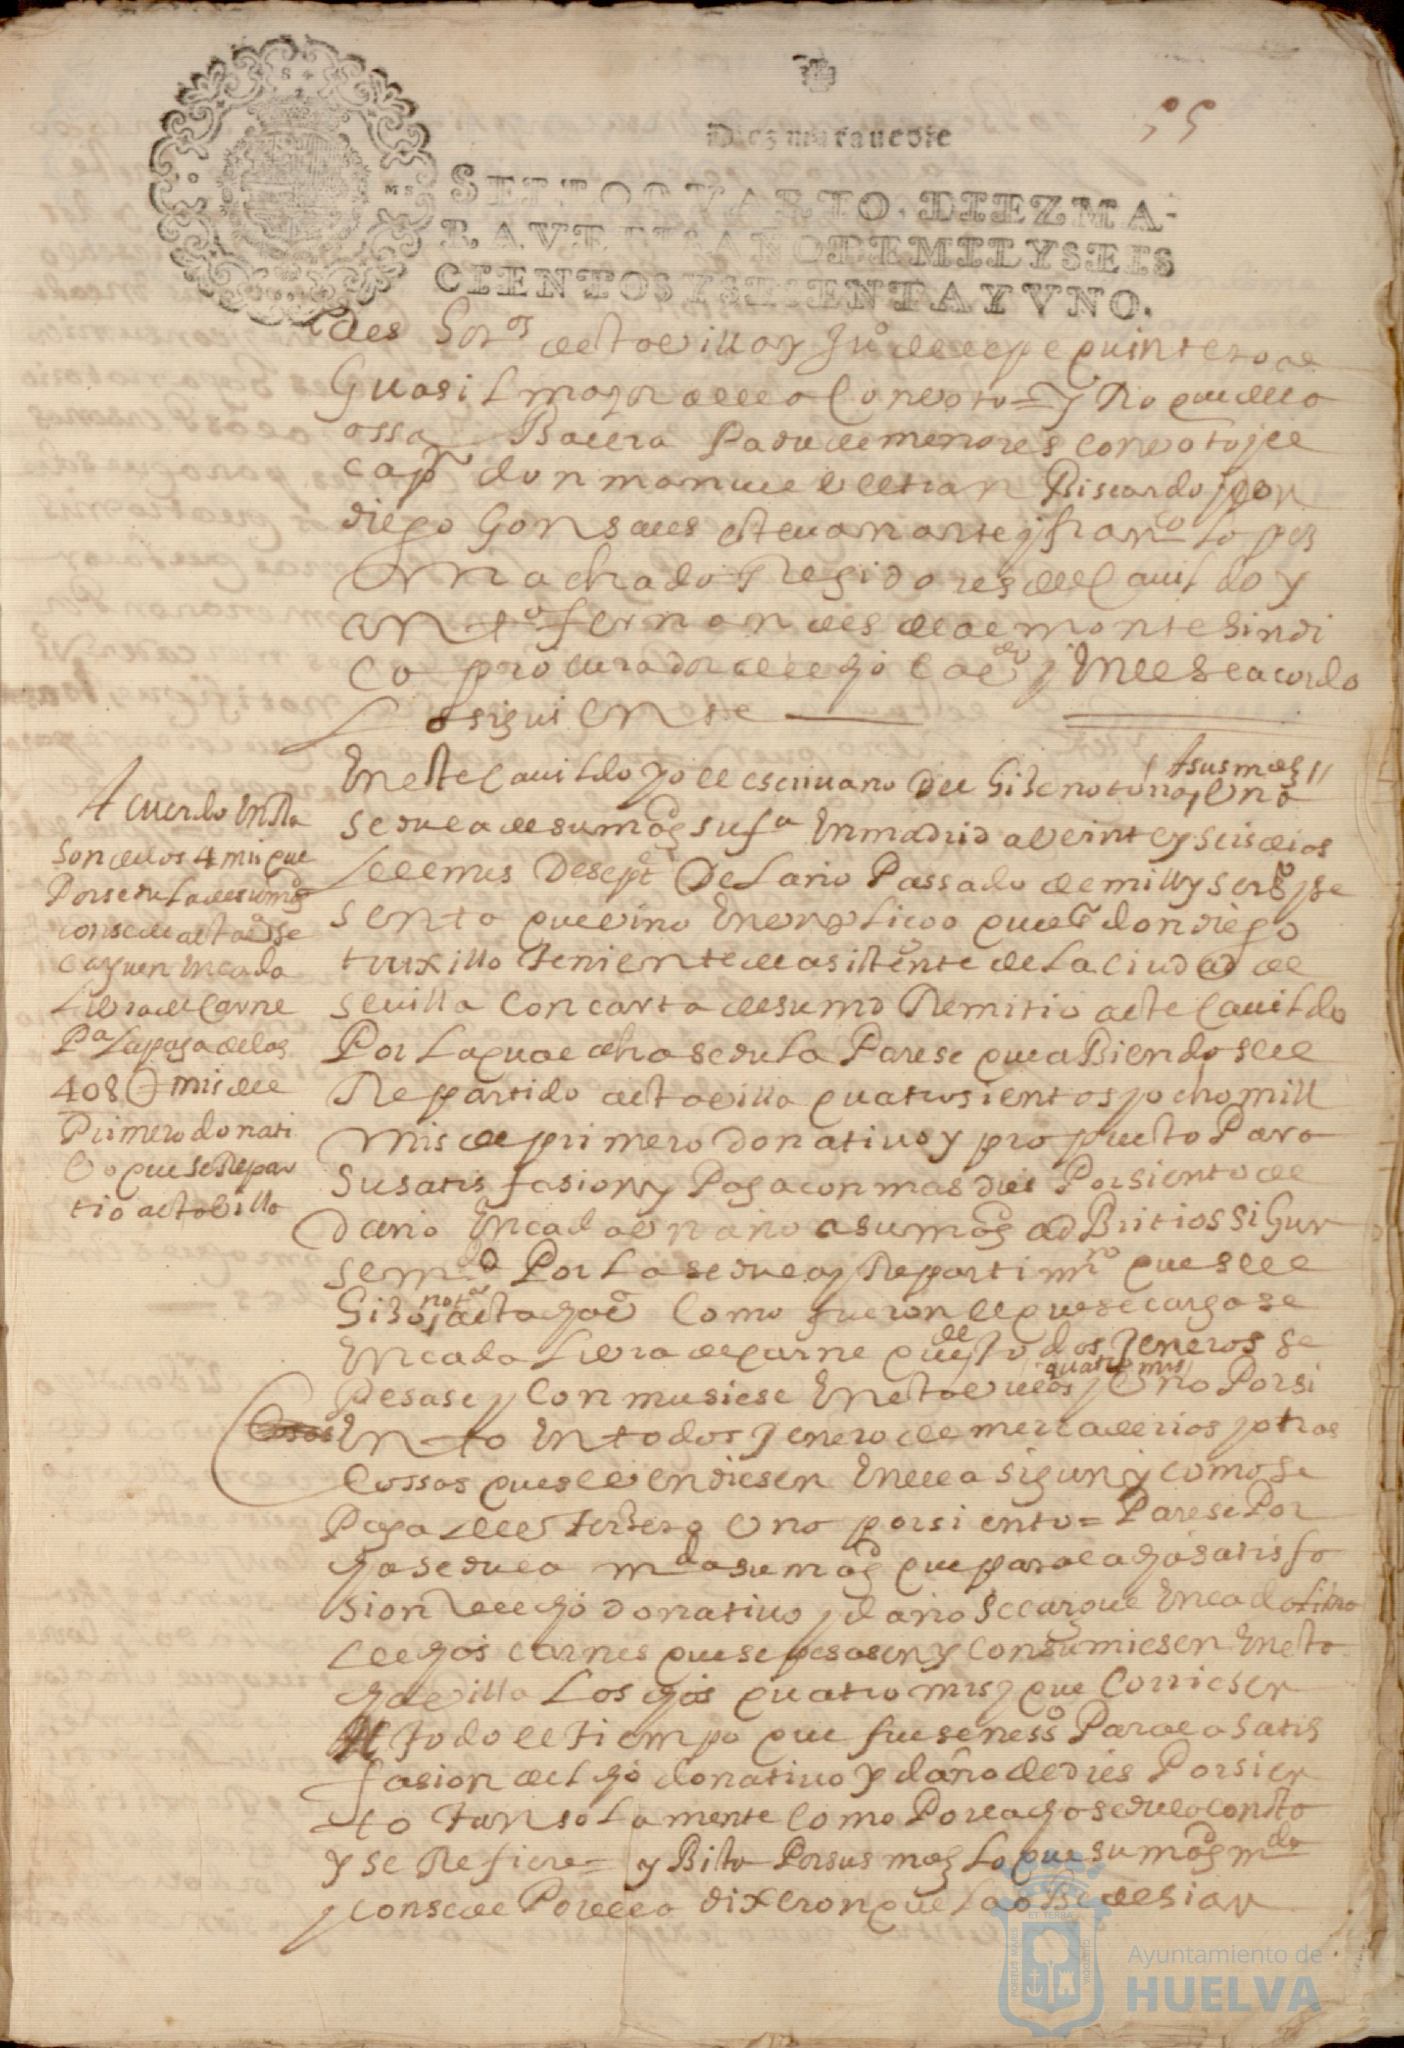 55
Diez marauedis
SELLO QVARTO, DIEZ MA-
RAVEDIS, AÑO DE MIL Y SEIS
CIENTOS Y SESENTA Y VNO.
des Sores desta villa y Juº de lepe quintero al
Guasil mayor della con voto = y Ro que de la
ossa Baiera Padre de menores con voto y el
capn don manuel veltran Biscardo y don
diego Gonsales estevan arte y franco Lopes
machado Regidores del Cauildo y
anto fernandes de almonte Sindi
co procurador del cho cauo y en el se acordo
Lo siguiente
En este Cauildo yo el escriuano Doi hise notoria a sus mds una
sedula de su magd su fa En madrid a veinte y seis dias
del mes De septe De Lano Passado de mill y seiso y se
senta que vino En vn pliego que el sr don diego
truxillo teniente de asistente de La ciudad de
seuilla con carta de su md Remitio a este Cauildo
Por La qual dha sedula Parese que aBiendosele
Repartido a esta villa quatrosientos y ocho mill
mrs de primero donatiuo y propuesto Para
su satisfasion y Paga con mas dies Por siento de
dano En cada vn año a su magd adBitrios sigun
se mdo Por La sedula y Repartimro que se le
hiso notº a esta dha va Como fueron el que se cargase
En cada Livra de Carne que de todos Jeneros se
Pesase y Con musiese En esta villa quatro mrs y Uno Por si
ento En todos Jenero de mercaderias y otras
Cossas que se vendiesen En ella sigun y como se
Paga el tersero Uno por siento = Parese Por
dha sedula mda su magd que para la dha satisfa
sion del dho donatiuo y daño se cargue En cada Libra
de dhas carnes que se pesasen y Consumiesen En esta
dha villa Los dhos quatro mrs y que Corriesen
todo el tiempo que fuse nesso Para la satis
fasion del dho donatiuo y daño de dies Por sien
to tan solamente Como Por la dha sedula consta
y se Refiere = y Bisto Por sus mds Lo que su magd mda
y consede Por ella dixeron que La oBedesian
Acuerdo En Ra
son de los 4 mrs que
Por sedula de su magd
consede a esta va se
carguen En cada
Livra de Carne
Pa La paga de los
408U mrs del
Primero donati
bo que se Repar
tio a esta billa
Ayuntamiento de
HUELVA